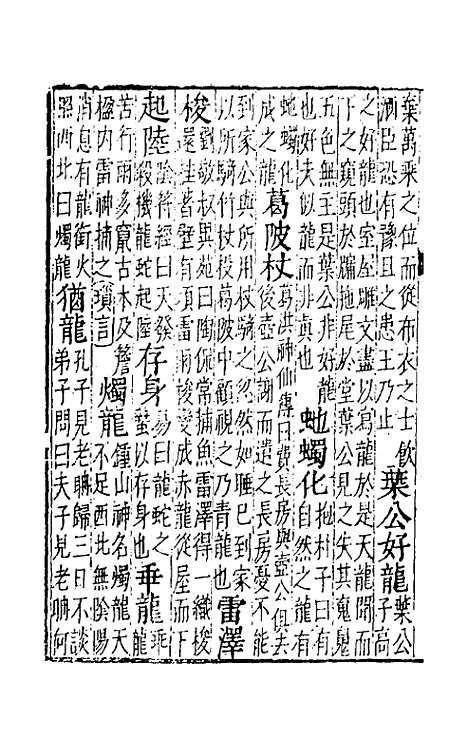 棄萬乘之位而從布衣之士飲
酒臣恐有豫且之患王乃止
葉公好龍
葉公
子高
之好龍也室屋雕文盡以寫龍於是天龍聞而
下之窺頭於牖拖尾於堂葉公見之失其魂魄
五色無主是葉公非好龍
也好夫似龍而非真也
虵蠋化
抱朴子曰有
自然之龍有
虵蠋化
成之龍
葛陂杖
葛洪神仙傳曰費長房與壺公俱去
後壺公謝而遣之長房憂不能
到家公與所用杖騎之忽然如睡巳到家
以所騎竹杖投葛陂中顧視之乃青龍也
雷澤
梭
劉敬叔異苑曰陶侃常捕魚雷澤得一織梭
還挂著壁有頃雷雨梭變成赤龍從屋而下
起陸
陰符經曰天發
殺機龍蛇起陸
存身
易曰龍蛇之
蟄以存身也
乖龍
乖
龍
苦行雨多竄古木及簷
楹内雷神捕之瑣言
燭龍
鍾山神名燭龍天
不足西北無陰陽
消息有龍銜火
照西北曰燭龍
猶龍
孔子見老聃歸三日不談
弟子問曰夫子見老聃何